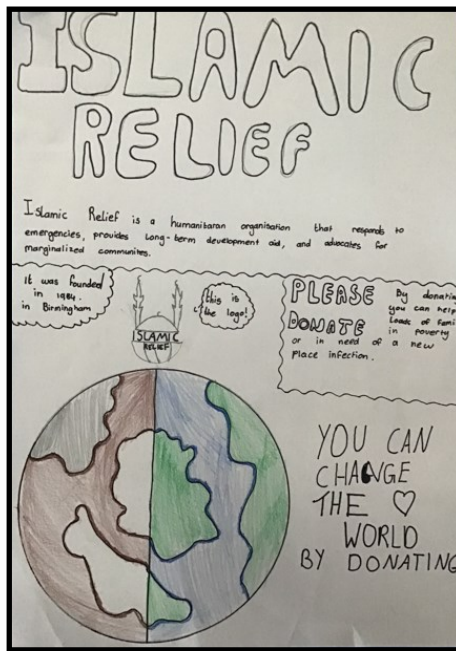 ISLAMIC
RELIEF
Islamic Relief is a humanitaran organisation that responds to
emergencies, provides long-term development aid, and advocates for
marginalized communites.
It was founded
in 1984
in Birmingham
this is
the logo!
ISLAMIC
RELIEF
PLEASE
DONATE
By donating
you can help
loads of famil
in poverty
or in need of a new
place infection.
YOU CAN
CHANGE
THE ♡
WORLD
BY DONATING